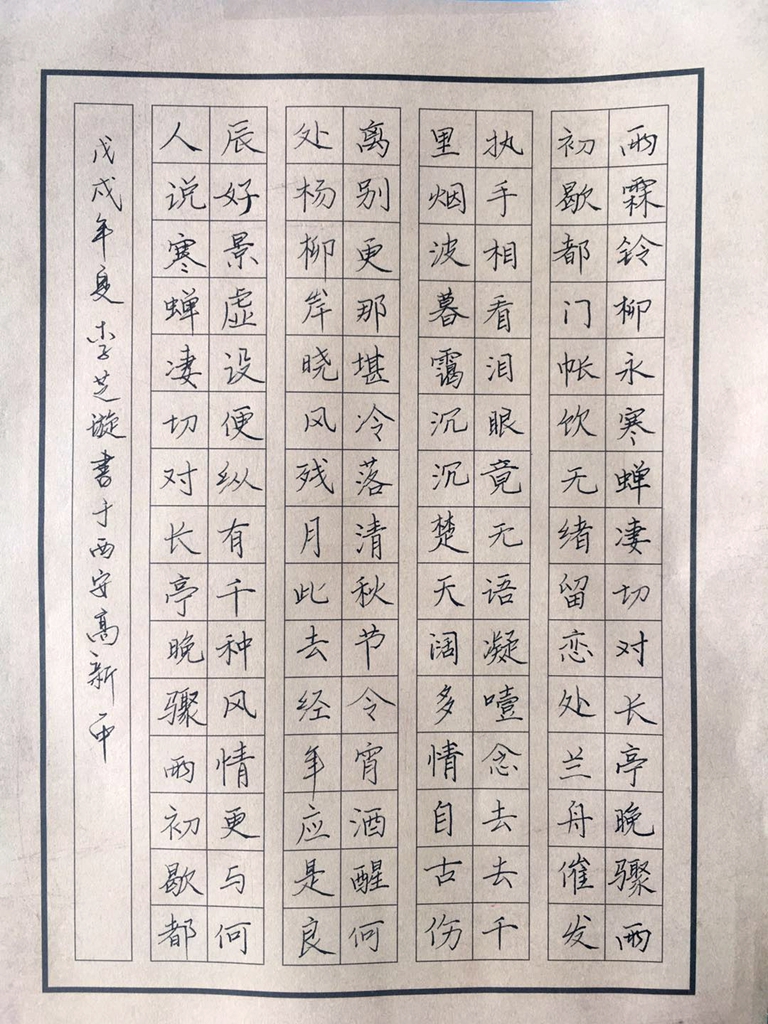 雨霖铃柳永寒蝉凄切对长亭晚骤雨
初歇都门帐饮无绪留恋处兰舟催发
执手相看泪眼竟无语凝噎念去去千
里烟波暮霭沉沉楚天阔多情自古伤
离别更那堪冷落清秋节令宵酒醒何
处杨柳岸晓风残月此去经年应是良
辰好景虚设便纵有千种风情更与何
人说寒蝉凄切对长亭晚骤雨初歇都
戊戌年夏 李芝璇书于西安高新一中